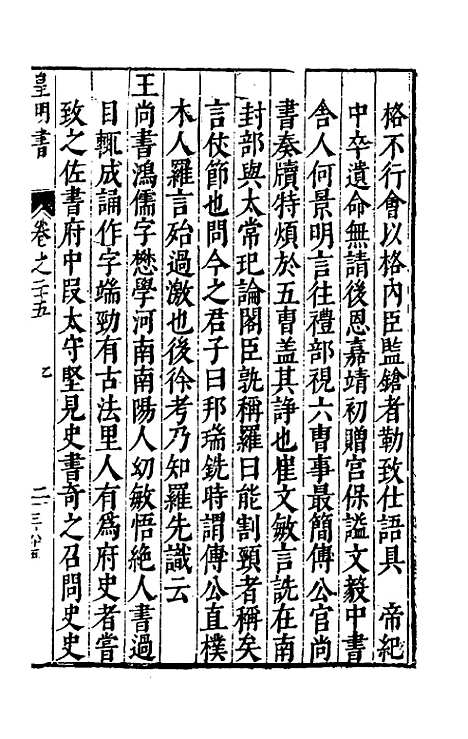 格不行會以格內臣監鎗者勒致仕語具　帝紀
中卒遺命無請後恩嘉靖初贈宮保謚文毅中書
舍人何景明言往禮部視六曹事最簡傅公官尚
書奏牘特煩於五曹盖其諍也崔文敏言詵在南
封部與太常玘論閣臣孰稱羅曰能割頸者稱矣
言仗節也問今之君子曰邦瑞銑時謂傅公直樸
木人羅言殆過激也後徐考乃知羅先識云
王尚書鴻儒字懋學河南南陽人幼敏悟絕人書過
目輒成誦作字端勁有古法里人有為府史者嘗
致之佐書府中段太守堅見史書奇之召問史史
皇明書　卷之二十五